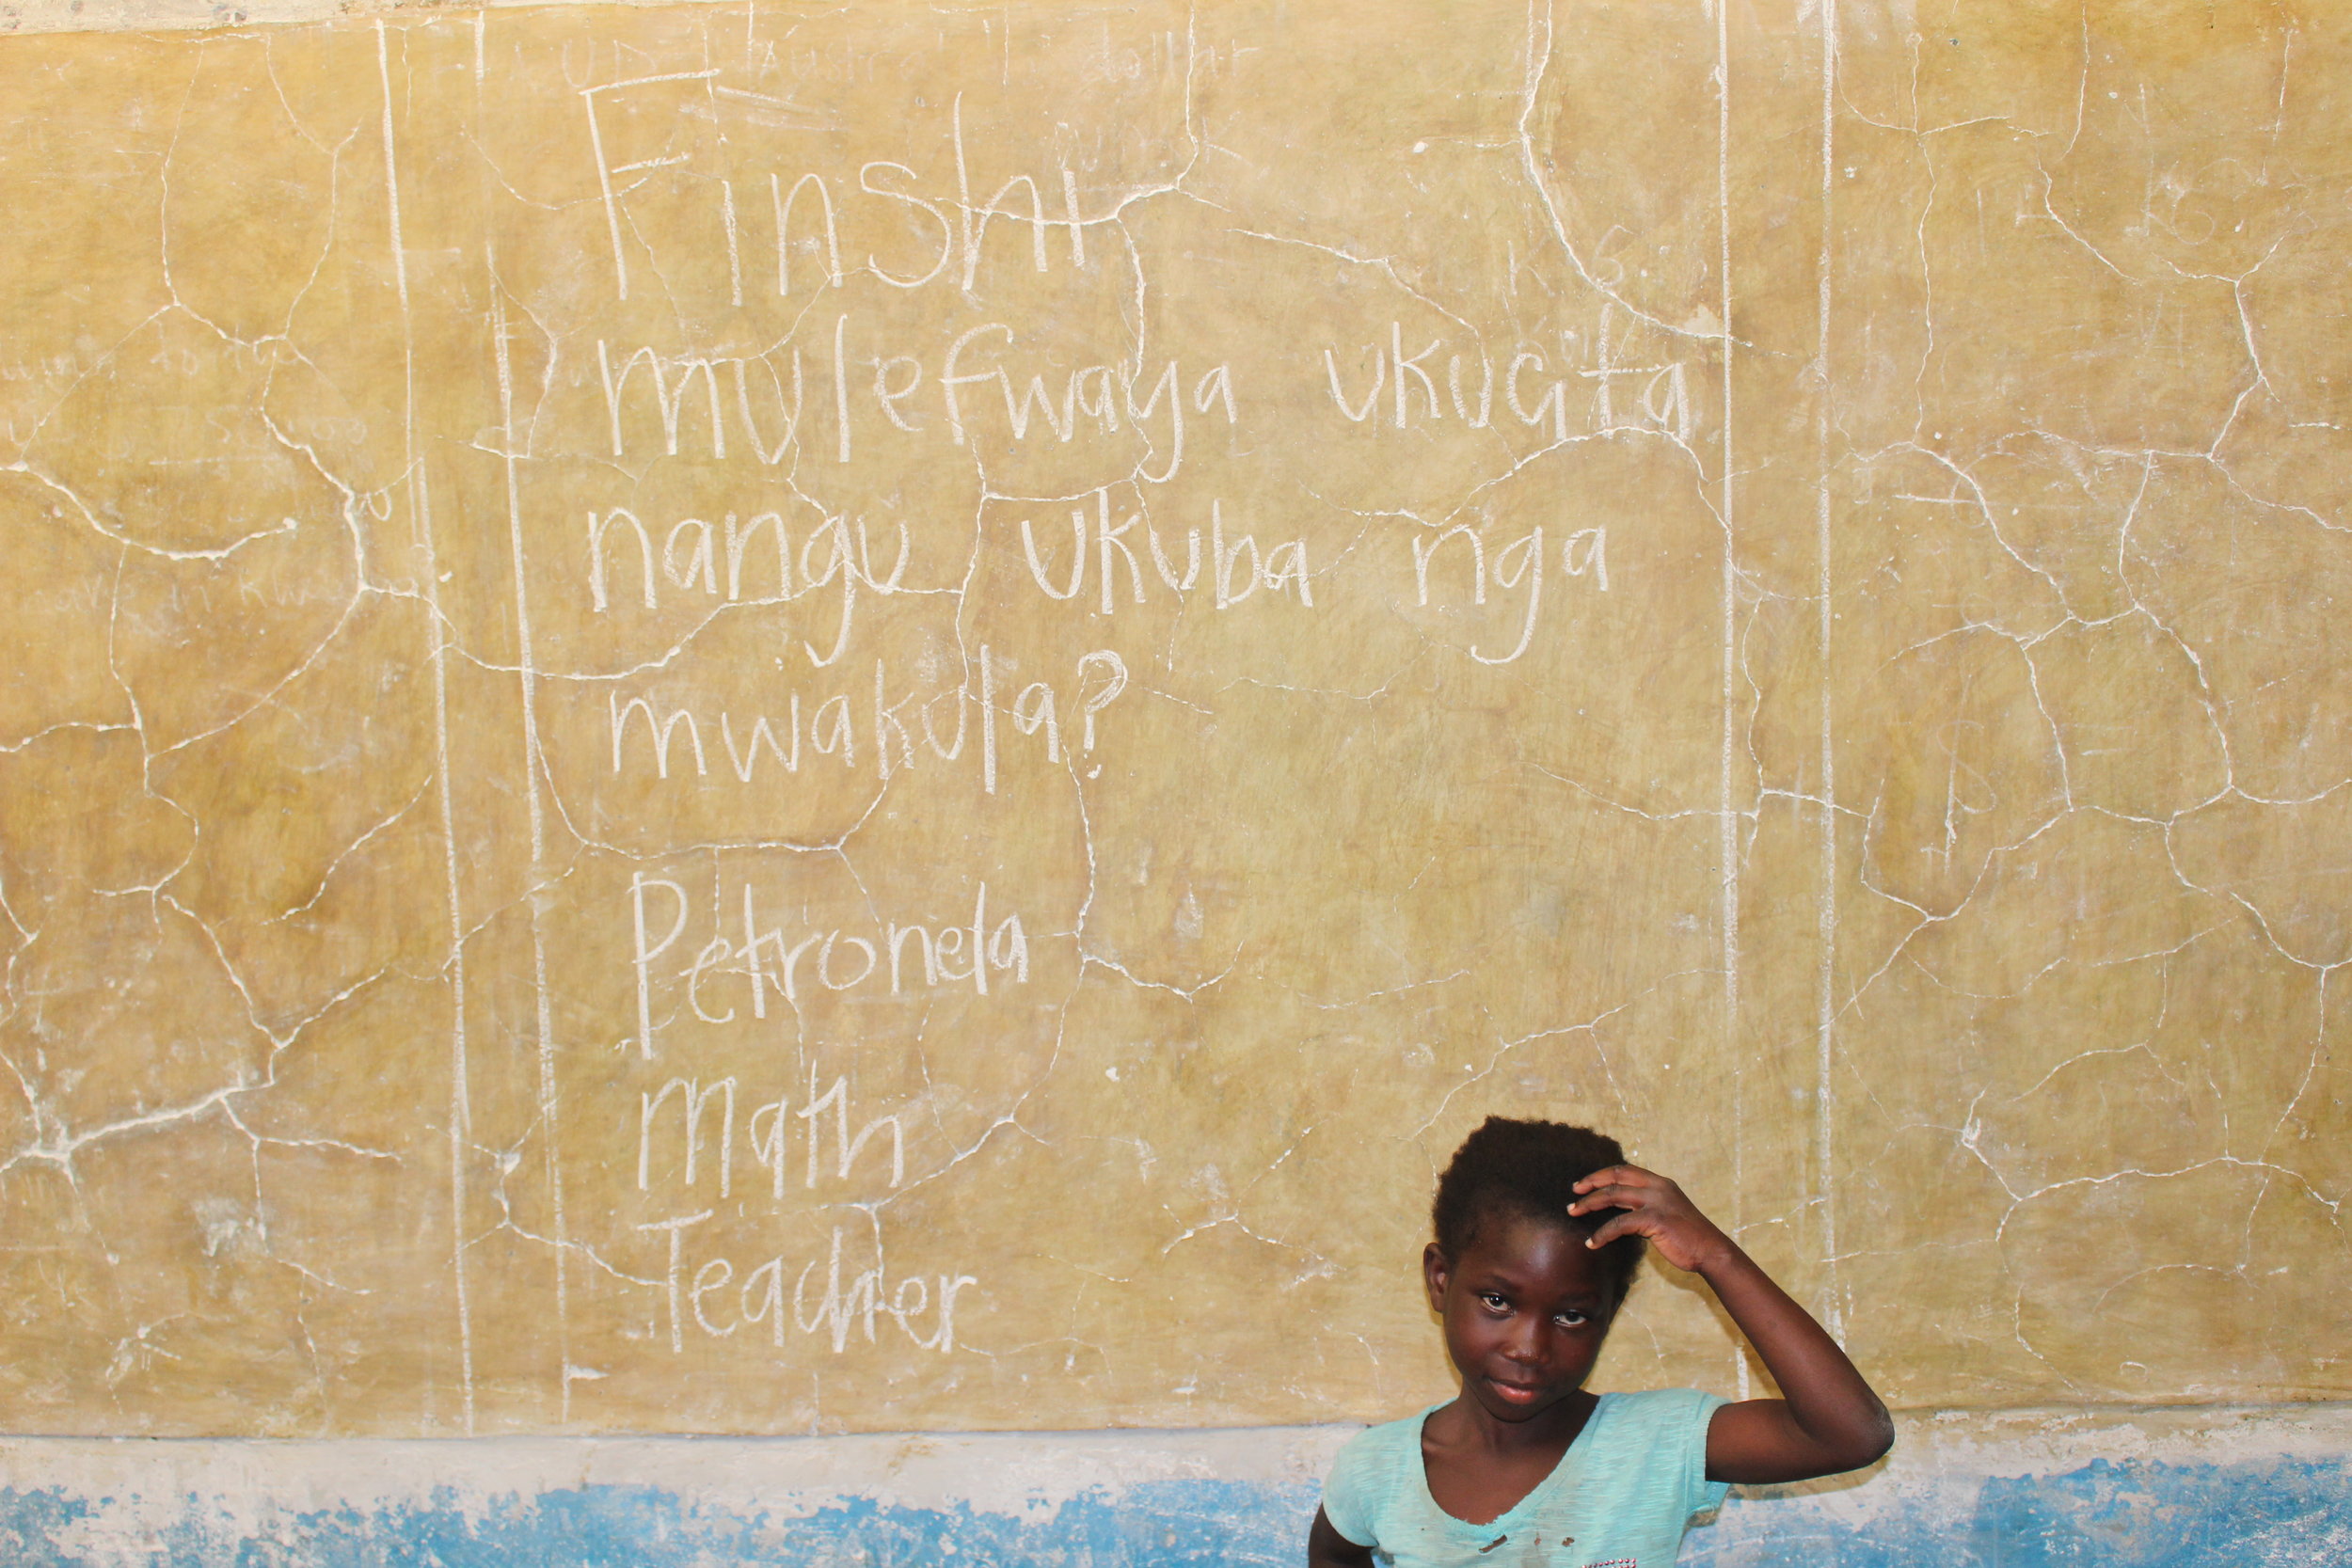 Finshi
mulefwaya ukucita
nangu ukuba nga
mwakula?
Petronela
Math
Teacher